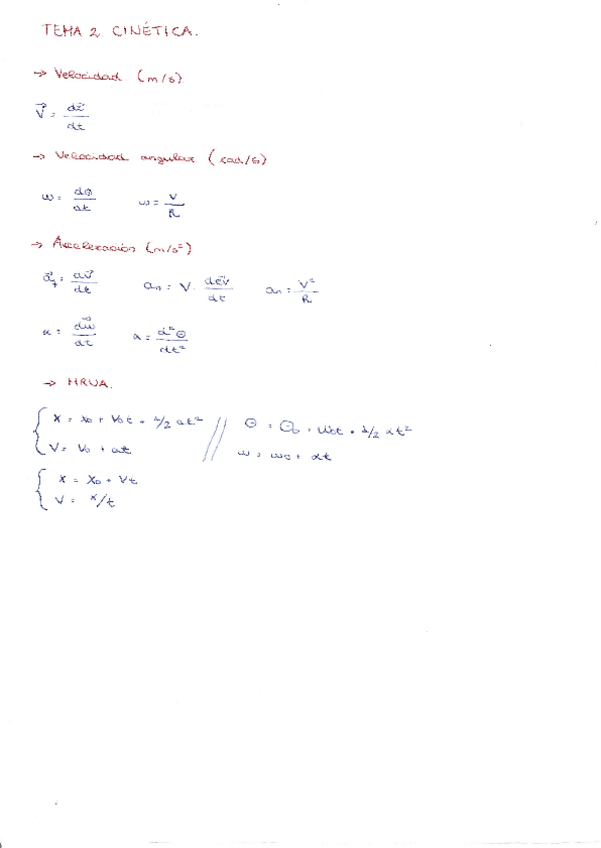 TEMA 2 CINÉTICA.
→ Velocidad (m/s)
v⃗ = dr⃗/dt
→ Velocidad angular (rad/s)
ω = dθ/dt ω = V/R
→ Aceleración (m/s²)
a⃗ₜ = dv⃗/dt aₙ = V · de⃗v/dt aₙ = V²/R
α = dω⃗/dt α = d²θ/dt²
→ MRUA.
X = X₀ + V₀t + 1/2 at² // θ = θ₀ + ω₀t + 1/2 αt²
V = V₀ + at ω = ω₀ + αt
X = X₀ + Vt
V = x/t